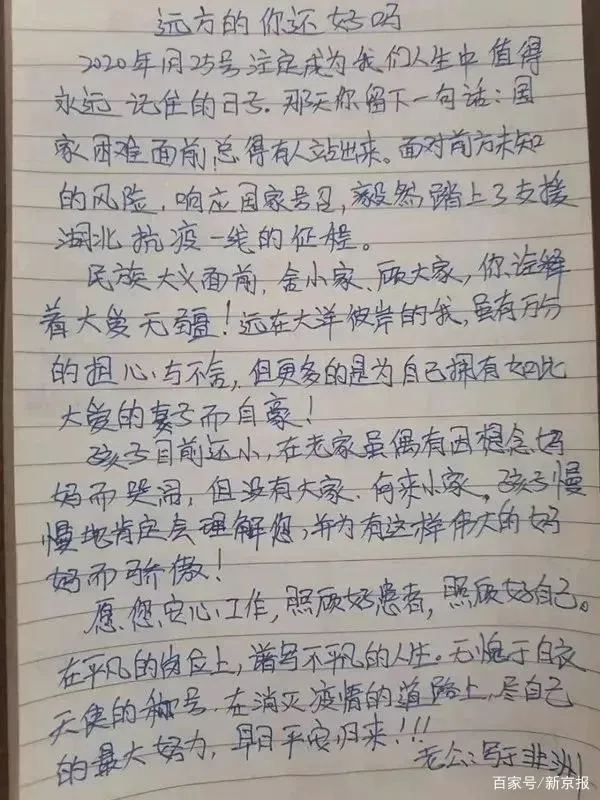 远方的你还好吗
2020年1月25号注定成为我们人生中值得
永远记住的日号。那天你留下一句话:国
家困难面前,总得有人站出来。面对前方未知
的风险,响应国家号召,毅然踏上了支援
湖北抗疫一线的征程。
民族大义面前,舍小家、顾大家,你诠释
着大爱无疆!远在大洋彼岸的我,虽有万分
的担心与不舍,但更多的是为自己拥有如此
大爱的妻子而自豪!
孩子目前还小,在老家虽偶有因想念妈
妈而哭闹,但没有大家、何来小家。孩子慢
慢地肯定会理解您,并为有这样伟大的妈
妈而骄傲!
愿您安心工作,照顾好患者,照顾好自己。
在平凡的岗位上,谱写不平凡的人生。无愧于白衣
天使的称号,在消灭疫情的道路上,尽自己
的最大努力,早日平安归来!!!
老公:写于非洲
百家号/新京报